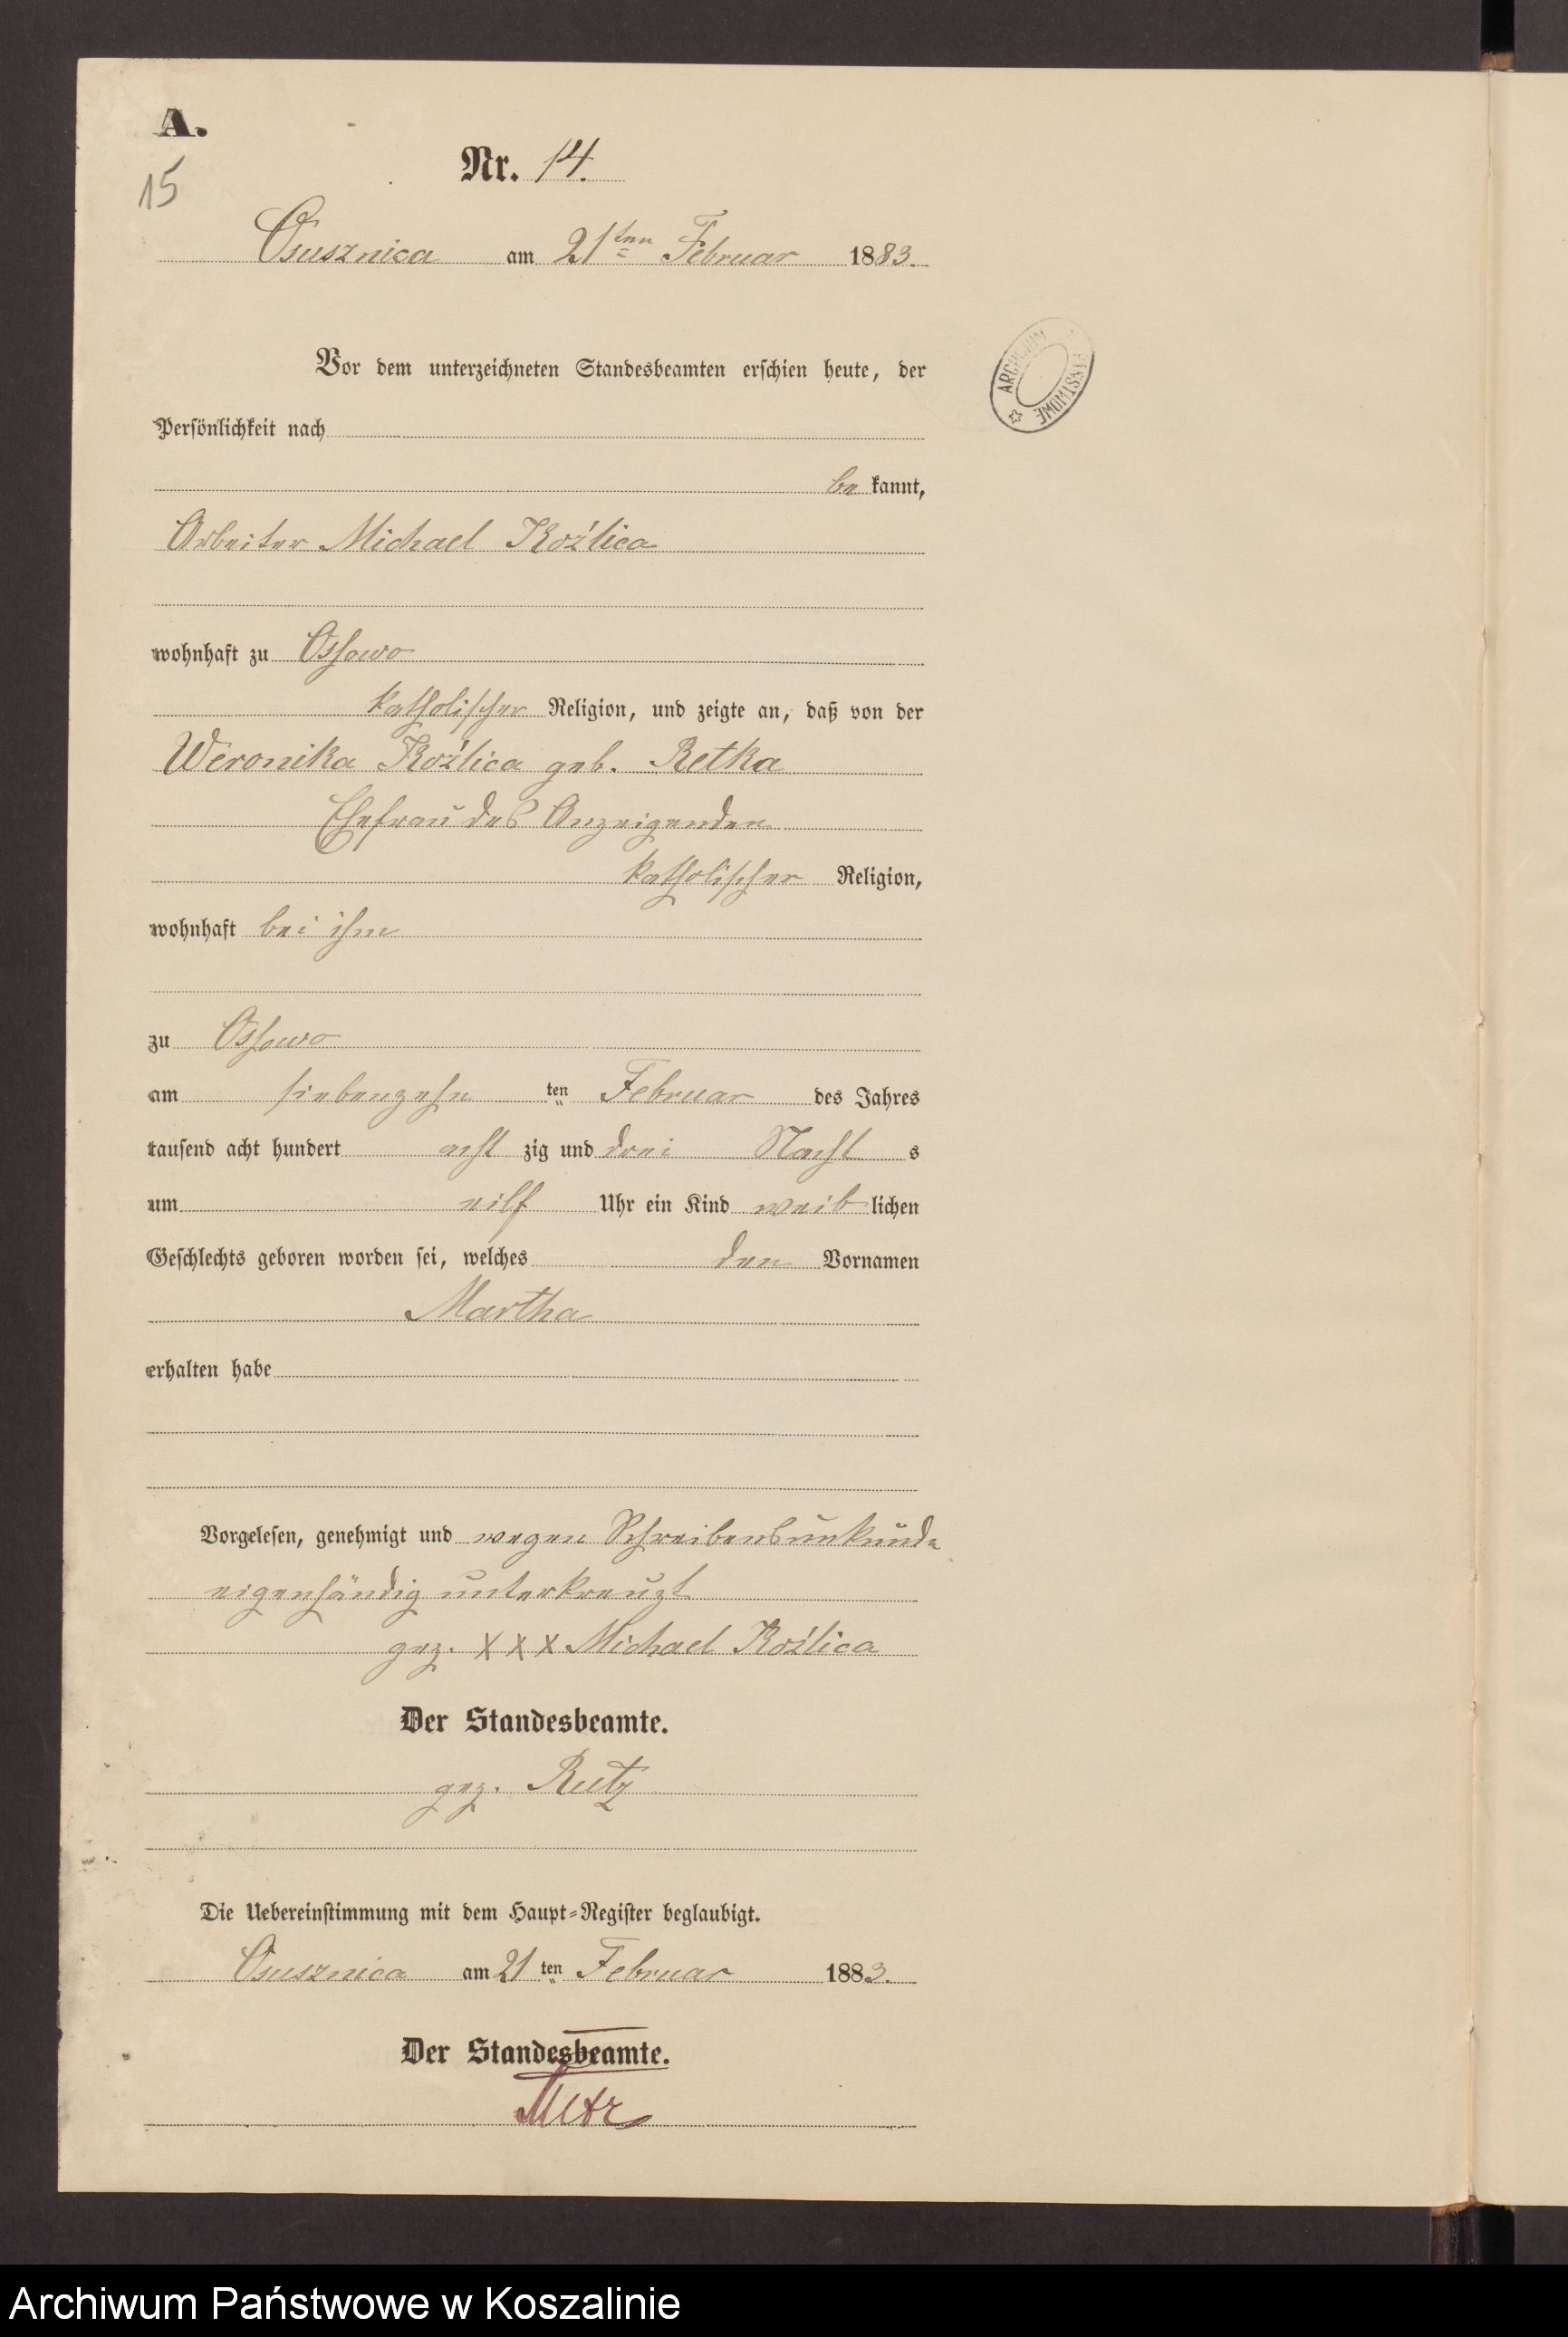 A.
15
Nr. 14.
Osusznica am 21ten Februar 1883.
Vor dem unterzeichneten Standesbeamten erschien heute, der
Persönlichkeit nach
be kannt,
Arbeiter Michael Koźlica
wohnhaft zu Ossowo
katholischer Religion, und zeigte an, daß von der
Weronika Koźlica geb. Retka
Ehefrau des Anzeigenden
katholischer Religion,
wohnhaft bei ihm
zu Ossowo
am siebenzehn ten Februar des Jahres
tausend acht hundert acht zig und drei Nacht s
um eilf Uhr ein Kind weib lichen
Geschlechts geboren worden sei, welches den Vornamen
Martha
erhalten habe
Vorgelesen, genehmigt und wegen Schreibensunkunde
eigenhändig unterkreuzt
gez. XXX Michael Koźlica
Der Standesbeamte.
gez. Rutz
Die Uebereinstimmung mit dem Haupt-Register beglaubigt.
Osusznica am 21 ten Februar 1883.
Der Standesbeamte.
ARCHIWUM
Archiwum Państwowe w Koszalinie